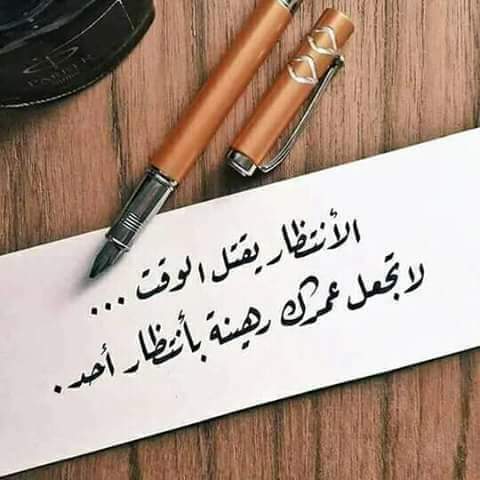 PARKER
الأنتظار يقتل الوقت ...
لا تجعل عمرك رهينة بأنتظار أحد.